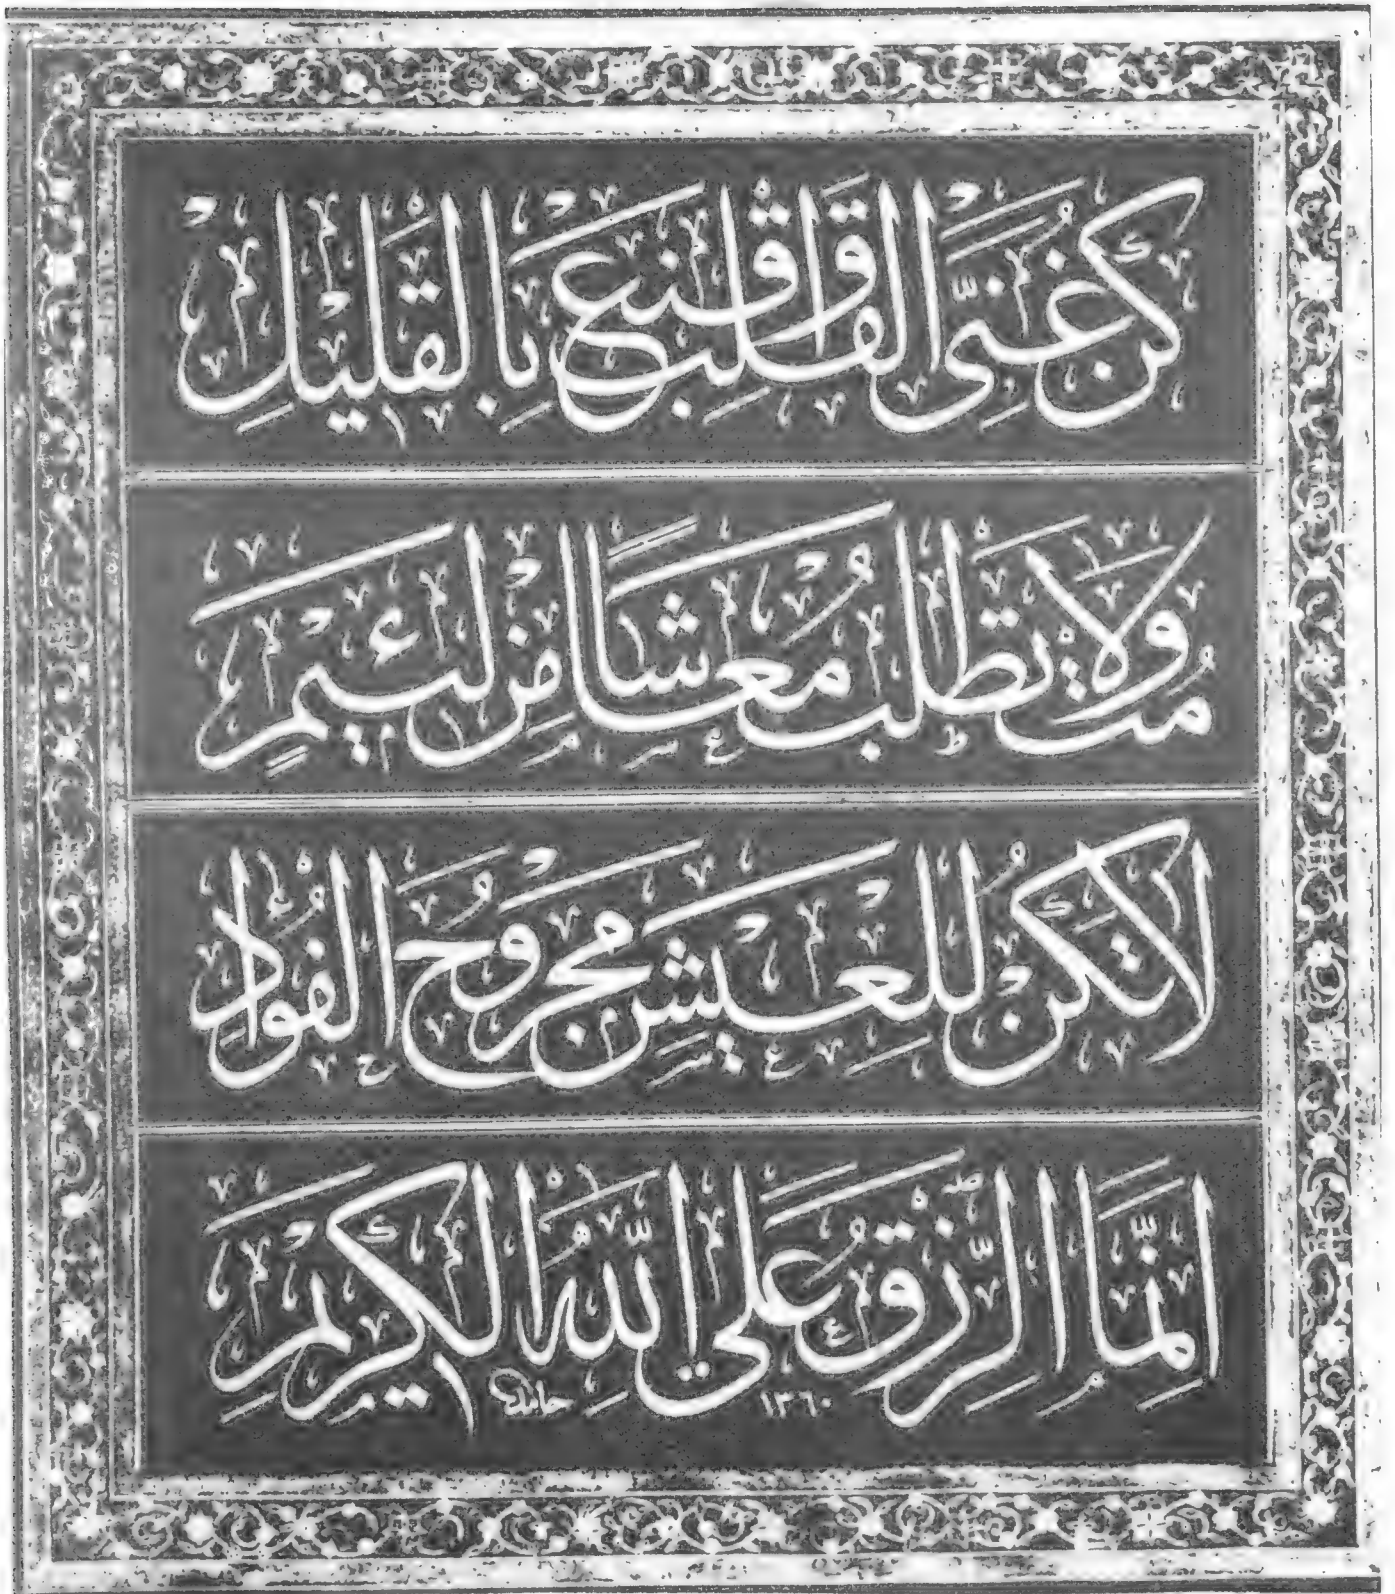 كُنْ غَنِىَّ الْقَلْبِ وَاقْنَعْ بِالْقَلِيلِ
مُتْ وَلَا تَطْلُبْ مَعَاشًا مِنْ لَئِيمٍ
لَا تَكُنْ لِلْعَيْشِ مَجْرُوحَ الْفُؤَادِ
إِنَّمَا الرِّزْقُ عَلَى اللّٰهِ الْكَرِيمِ
حامد ١٣٦٠